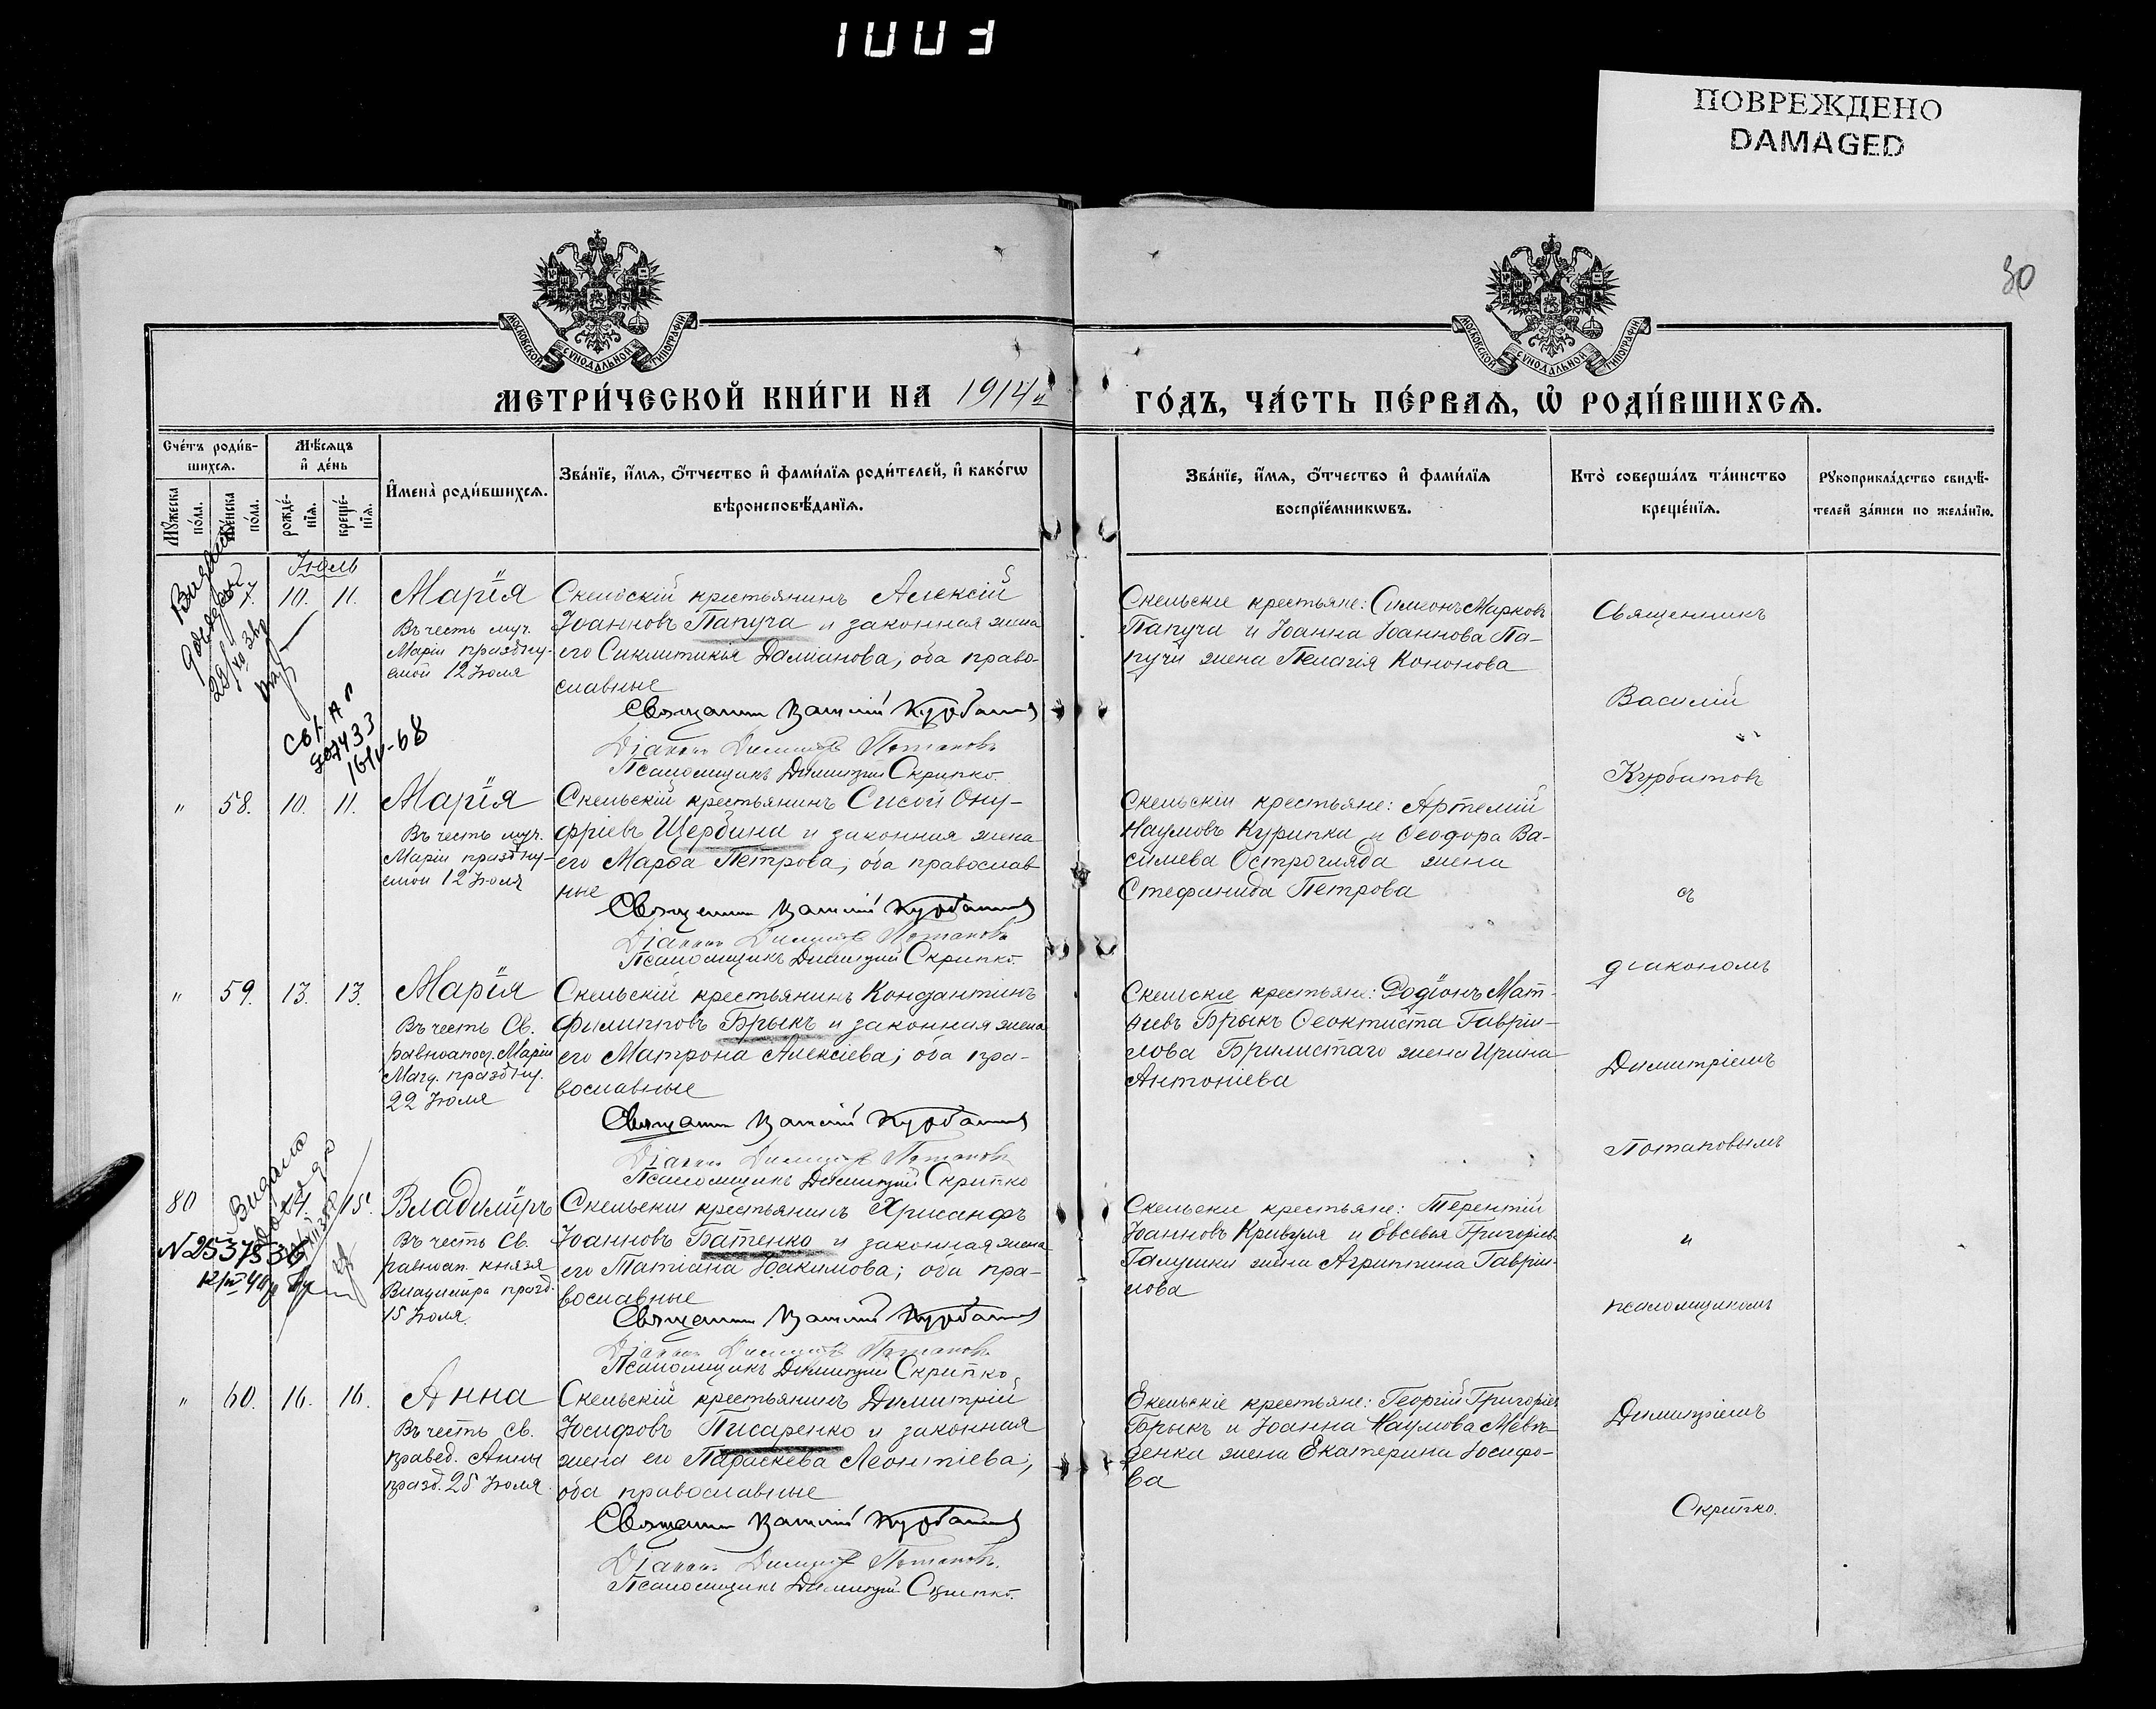 1003
ПОВРЕЖДЕНО
DAMAGED
30
МОСКОВСКОЙ СѴНОДАЛЬНОЙ ТИПОГРАФІИ
МОСКОВСКОЙ СѴНОДАЛЬНОЙ ТИПОГРАФІИ
МЕТРИ́ЧЕСКОЙ КНИ́ГИ НА 1914й
ГО́ДЪ, ЧА́СТЬ ПЕ́РВАѦ, Ѡ РОДИ́ВШИХСѦ.
Сче́тъ роди́в-
шихсѧ.
Мꙋжеска
по́ла.
Же́нска
по́ла.
Мѣ́сѧцъ
и҆ де́нь
рожде́-
нїѧ.
креще́-
нїѧ.
И҆мена̀ роди́вшихсѧ.
Зва́нїе, и҆́мѧ, ѻ҆́тчество и҆ фами́лїѧ роди́телей, и҆ како́гѡ
вѣроисповѣ́данїѧ.
Зва́нїе, и҆́мѧ, ѻ҆́тчество и҆ фами́лїѧ
воспрїе́мникѡвъ.
Кто̀ соверша́лъ та́инство
креще́нїѧ.
Рꙋкоприкла́дство свидѣ́-
телей за́писи по жела́нїю.
Іюль
10. 11.
Марія
Въ честь муч.
Маріи праздну-
емой 12 Іюля
Скельскій крестьянинъ Алексій
Іоанновъ Папуча и законная жена
его Синклитикія Даміанова; оба право-
славные
Священникъ Василій Курбатовъ
Діаконъ Димитрій Потаповъ
Псаломщикъ Димитрій Скрипко.
Скельскіе крестьяне: Симеонъ Марковъ
Папуча и Іоанна Іоаннова Па-
пучи жена Пелагія Кононова
Священникъ
Василій
Курбатовъ
съ
діакономъ
Димитріемъ
Потаповымъ
и
псаломщикомъ
Димитріемъ
Скрипко.
" 58. 10. 11.
Марія
Въ честь муч.
Маріи праздну-
емой 12 Іюля
Скельскій крестьянинъ Сисой Ону-
фріевъ Щербина и законная жена
его Марѳа Петрова; оба православ-
ные
Священникъ Василій Курбатовъ
Діаконъ Димитрій Потаповъ
Псаломщикъ Димитрій Скрипко.
Скельскіи крестьяне: Артемій
Наумовъ Курипка и Ѳеодора Ва-
сильева Остроглядa жена
Стефанида Петрова
" 59. 13. 13.
Марія
Въ честь Св.
равноапост. Маріи
Магд. праздну.
22 Іюля
Скельскій крестьянинъ Константинъ
Филипповъ Брыкъ и законная жена
его Матрона Алексіева; оба пра-
вославные
Священникъ Василій Курбатовъ
Діаконъ Димитрій Потаповъ
Псаломщикъ Димитрій Скрипко
Скельскіе крестьяне: Родіонъ Мат-
ѳіевъ Брыкъ Ѳеоктиста Гавріи-
лова Брилистаго жена Ирина
Антоніева
80 14. 15.
Видано
N 2537536
Владиміръ
Въ честь Св.
равноап. князя
Владиміра празд.
15 Іюля.
Скельскій крестьянинъ Хрисанфъ
Іоанновъ Батенко и законная жена
его Татіана Іоакимова; оба пра-
вославные
Священникъ Василій Курбатовъ
Діаконъ Димитрій Потаповъ
Псаломщикъ Димитрій Скрипко
Скельскіи крестьяне: Терентій
Іоанновъ Кривуля и Евсевія Григоріева
Галушки жена Агриппина Гавріи-
лова
" 60. 16. 16.
Анна
Въ честь св.
правед. Анны
празд. 25 Іюля
Скельскій крестьянинъ Димитрій
Іосифовъ Писаренко и законная
жена его Параскева Леонтіева;
оба православные
Священникъ Василій Курбатовъ
Діаконъ Димитрій Потаповъ.
Псаломщикъ Димитрій Скрипко.
Скельскіе крестьяне: Георгій Григоріев
Брыкъ и Іоанна Наумова Медвѣ-
денки жена Екатерина Іосифо-
ва